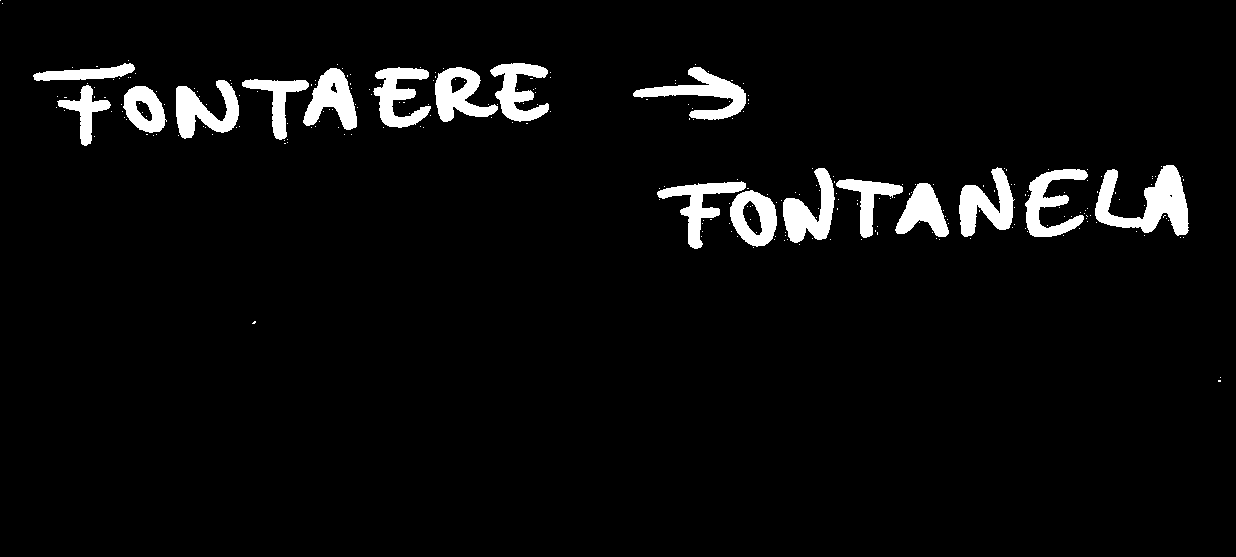 FONTAERE →
FONTANELA